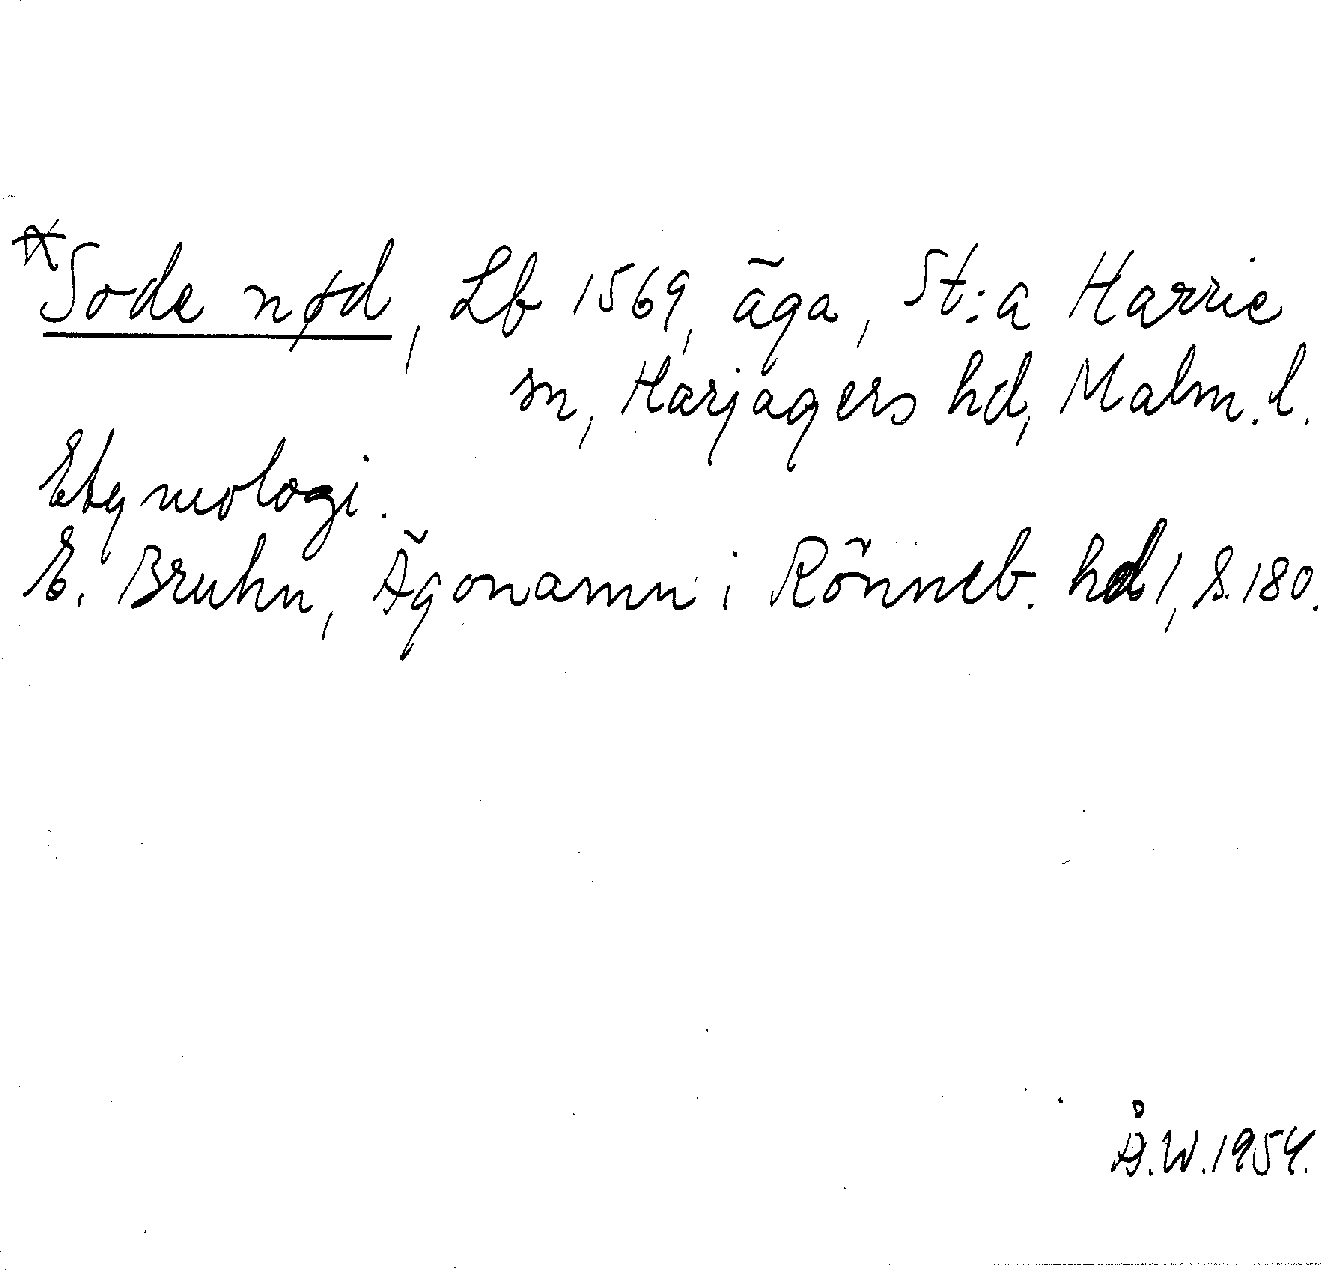 *Sode nød, Lb 1569, äga, St:a Harrie
sn, Harjagers hd, Malm. l.
Etymologi.
E. Bruhn, Ägonamn i Rönneb. hd 1, S. 180.
Å.W. 1954.